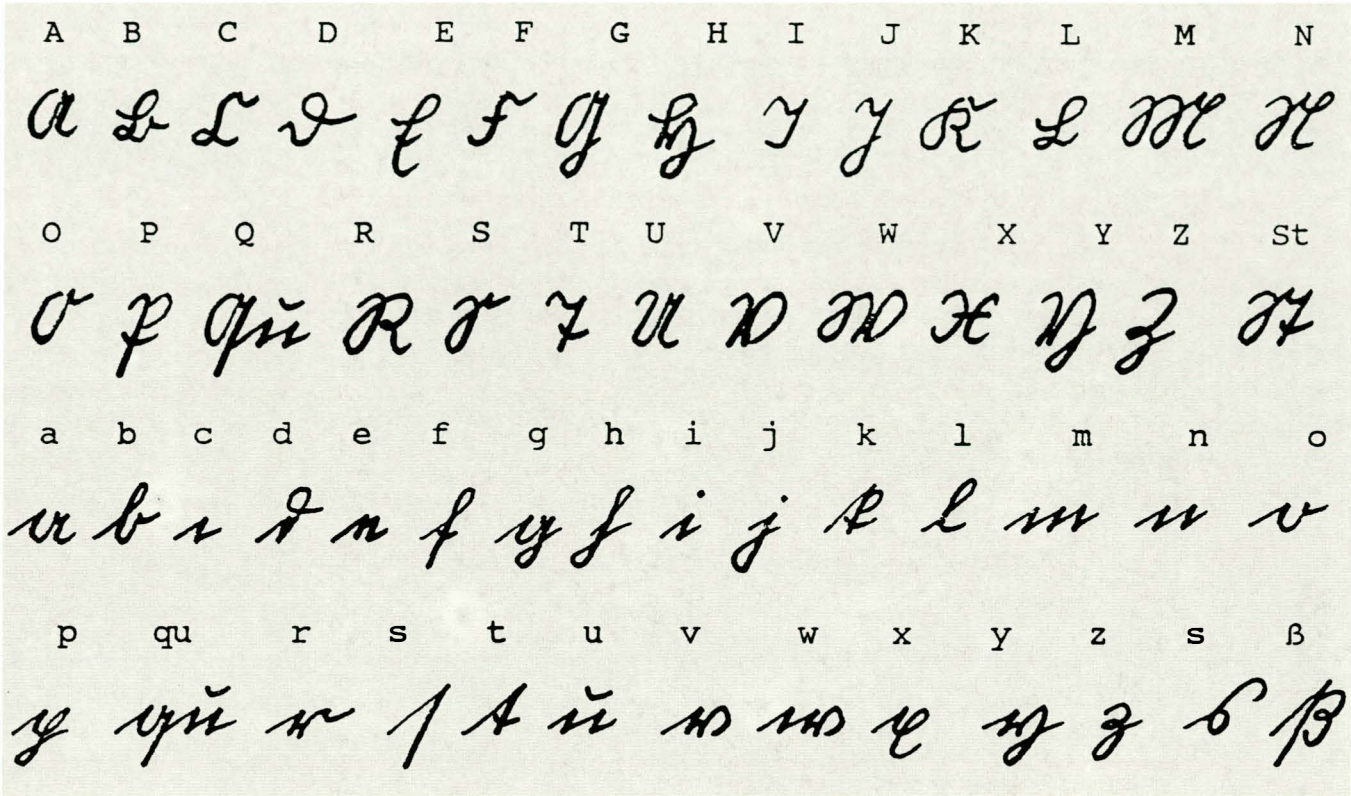 A B C D E F G H I J K L M N
A B C D E F G H I J K L M N
O P Q R S T U V W X Y Z St
O P Qu R S T U V W X Y Z St
a b c d e f g h i j k l m n o
a b c d e f g h i j k l m n o
p qu r s t u v w x y z s ß
p qu r s t u v w x y z s ß